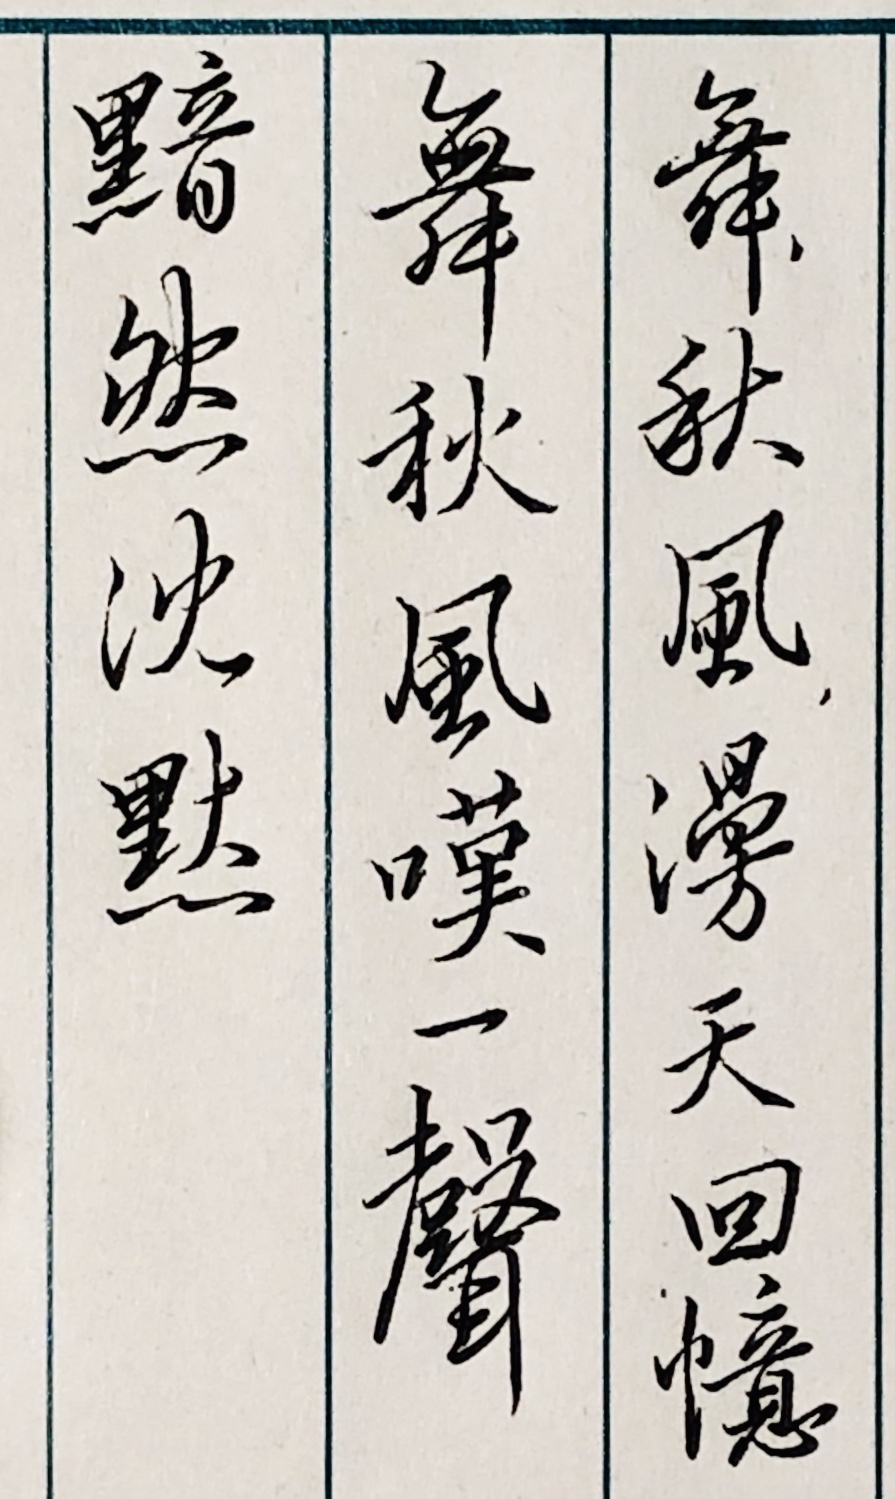 舞秋風漫天回憶
舞秋風嘆一聲
黯然沈默